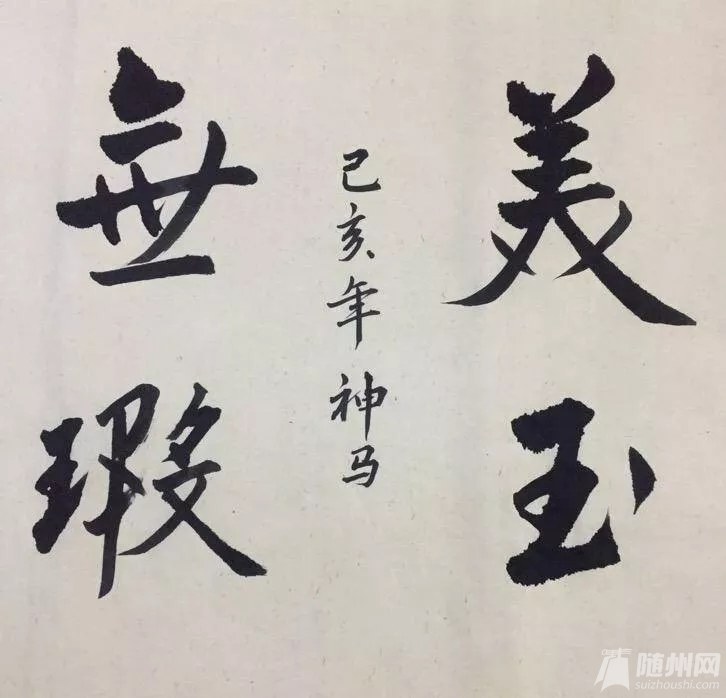 美玉
己亥年神马
無瑕
随州网
suizhoushi.com